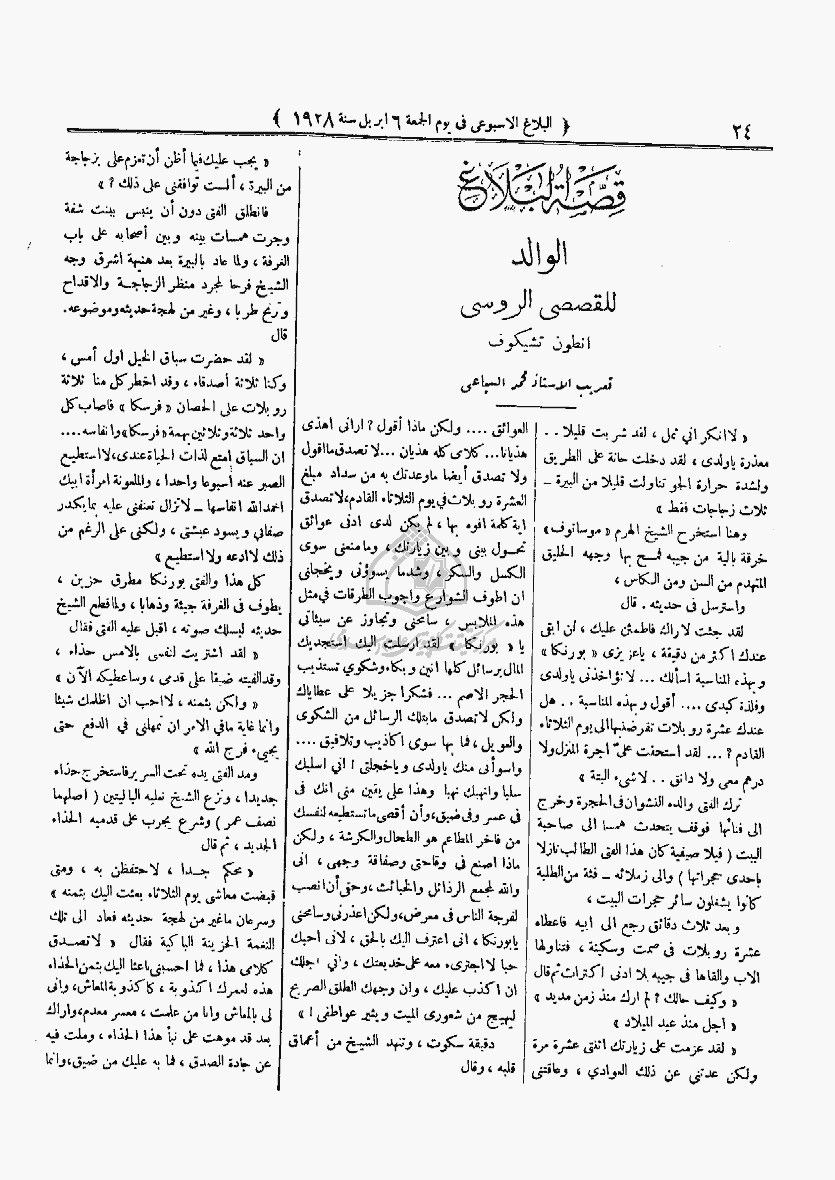 ٢٤
﴿ البلاغ الاسبوعى فى يوم الجمعة ٦ ابريل سنة ١٩٢٨ ﴾
قصة البلاغ
الوالد
للقصصى الروسى
انطون تشيكوف
تعريب الاستاذ محمد السباعى
« لا انكر اني ثمل ، لقد شربت قليلا . .
معذرة ياولدى ، لقد دخلت حانة على الطريق
ولشدة حرارة الجو تناولت قليلا من البيرة ــ
ثلاث زجاجات فقط »
وهنا استخرج الشيخ الهرم « موساتوف»
خرقة بالية من جيبه فمسح بها وجهه الحليق
المتهدم من السن ومن الكاس ،
واسترسل فى حديثه . قال
لقد جئت لاراك فاطمئن عليك ، لن ابقى
عندك اكثر من دقيقة ، ياعزيزى « بورنكا »
وبهذه المناسبة أسألك ... لا تؤاخذنى ياولدى
وفلذة كبدى .... أقول وبهذه المناسبة . . هل
عندك عشرة روبلات تقرضنيها الى يوم الثلاثاء
القادم ? ... لقد استحقت علىّ اجرة المنزل ولا
درهم معى ولا دانق . . لاشىء البتة »
ترك الفتى والده النشوان فى الحجرة وخرج
الى فنائها فوقف يتحدث همسا الى صاحبة
البيت ( فيلا صيفية كان هذا الفتى الطالب نازلا
باحدى حجراتها ) والى زملائه ــ فئة من الطلبة
كانوا يشغلون سائر حجرات البيت ،
وبعد ثلاث دقائق رجع الى ابيه فاعطاه
عشرة روبلات فى صمت وسكينة ، فتناولها
الاب والقاها فى جيبه بلا ادنى اكتراث ثم قال
« وكيف حالك ? لم ارك منذ زمن مديد »
« أجل منذ عيد الميلاد »
« لقد عزمت على زيارتك اثنتى عشرة مرة
ولكن عدتني عن ذلك العوادي ، وعاقتنى
العوائق .... ولكن ماذا أقول ? ارانى اهذى
هذيانا... كلامى كله هذيان ... لا تصدق ما اقول
ولا تصدق أيضا ماوعدتك به من سداد مبلغ
العشرة روبلات فى يوم الثلاثاء القادم، لا تصدق
اية كلمة افوه بها ، لم يكن لدى ادنى عوائق
تحول بينى وبين زيارتك ، وما منعنى سوى
الكسل والسكر ، وشدما يسوؤنى ويخجلنى
ان اطوف الشوارع واجوب الطرقات فى مثل
هذه الملابس ، سامحنى وتجاوز عن سيئاتى
يا « بورنكا » لقد ارسلت اليك استجديك
المال برسائل كلها انين وبكاء وشكوي تستذيب
الحجر الاصم ... فشكرا جزيلا على عطاياك
ولكن لا تصدق مابتلك الرسائل من الشكوى
والعويل ، فما بها سوى اكاذيب وتلافيق ....
واسوأتى منك ياولدى وياخجلتى ! اني اسلبك
سلبا وانهبك نهبا وهذا على يقين منى انك فى
فى عسر وفى ضيق، وأن أقصى ما تستطيعه لنفسك
من فاخر المطاعم هو الطحال والكرشة ، ولكن
ماذا اصنع فى وقاحتى وصفاقة وجهى ، انى
والله لمجمع الرذائل والخبائث ، وحتى أن انصب
لفرجة الناس فى معرض، ولكن اعذرنى وسامحنى
يابورنكا ، انى اعترف اليك بالحق ، لانى أحبك
حبا لا اجترىء معه على خديعتك ، واني اجلك
ان اكذب عليك ، وان وجهك الطلق الصريح
ليهيج من شعورى الميت ويثير عواطفى ! »
دقيقة سكوت ، وتنهد الشيخ من أعماق
قلبه ، وقال
« يجب عليك فيما أظن أن تعزم على بزجاجة
من البيرة ، ألست توافقنى على ذلك ? »
فانطلق الفتى دون أن ينبس ببنت شفة
وجرت همسات بينه وبين أصحابه على باب
الغرفة ، ولما عاد بالبيرة بعد هنيهة اشرق وجه
الشيخ فرحا لمجرد منظر الزجاجة والاقداح
وترنح طربا ، وغير من لهجة حديثه وموضوعه.
قال
« لقد حضرت سباق الخيل اول أمس ،
وكنا ثلاثة أصدقاء ، وقد اخطر كل منا ثلاثة
روبلات على الحصان « فرسكا » فاصاب كل
واحد ثلاثة وثلاثين بهمة « فرسكا» وانفاسه....
ان السباق امتع لذات الحياة عندى، لا استطيع
الصبر عنه أسبوعا واحدا ، والملعونة امرأة ابيك
احمد الله انفاسها ــ لا تزال تعنفنى عليه بما يكدر
صفائي ويسود عيشتى ، ولكنى على الرغم من
ذلك لا ادعه ولا استطيع »
كل هذا والفتى بورنكا مطرق حزين ،
يطوف فى الغرفة جيئة وذهابا ، ولما قطع الشيخ
حديثه ليسلك صوته ، اقبل عليه الفتى فقال
« لقد اشتريت لنفسى بالامس حذاء ،
وقد الفيته ضيقا على قدمى ، وساعطيكه الآن »
« ولكن بثمنه ، لا احب ان اظلمك شيئا
وانما غاية مافي الامر ان تمهلنى في الدفع حتى
يجيء فرج الله »
ومد الفتى يده تحت السرير فاستخرج حذاء
جديدا ، ونزع الشيخ نعليه الباليتين ( اصلهما
نصف عمر ) وشرع يجرب على قدميه الحذاء
الجديد ، ثم قال
« محكم جدا ، لاحتفظن به ، ومتى
قبضت معاشى يوم الثلاثاء بعثت اليك بثمنه »
وسرعان ماغير من لهجة حديثه فعاد الى تلك
النغمة الحزينة الباكية فقال « لا تصدق
كلامى هذا ، فما احسبنى باعثا اليك بثمن الحذاء
هذه لعمرك اكذوبة ، كاكذوبة المعاش، وانى
لى بالمعاش وانا من علمت ، معسر معدم، واراك
بعد قد موهت على نبأ هذا الحذاء ، وملت فيه
عن جادة الصدق ، فما به عليك من ضيق، وانما